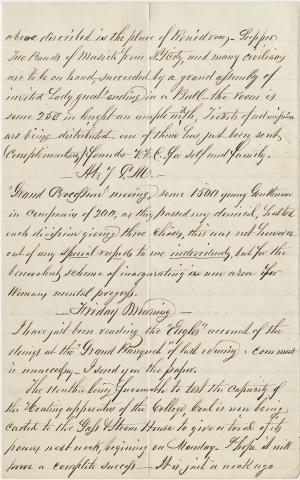 above described is the place of Rendezvous - Supper
Two Bands of Musick from N.Y. City and many civilians
are to be on hand, succeeded by a grand assembly of
invited Lady guests ending in a Ball - the room is
some 250 in length an ample width, Tickets of admission
are being distributed - one of them has just been sent
Complimentary Founder V. F. C. for self and family.
At 7 P.M. -
"Grand Procession" moving, some 1500 young Gentlemen
in companies of 200, as they passed my domicil, halted
each division giving three cheers, this was not however
out of any special respect to me individually, but for the
benevolent scheme of inaugurating a new area for
Womans mental progress.
Friday Morning -
I have just been reading the "Eagles" account of the
doings at the "Grand Banquet" of last evening. comment
is unnecessary - I send you the paper.
The Weather being favourable to test the capacity of
the Heating apparatus of the College Coal is now being
carted to the Gass & Steam House to give a trial of its
powers next week, begining on Monday - I hope it will
prove a complete success - It is just a week ago